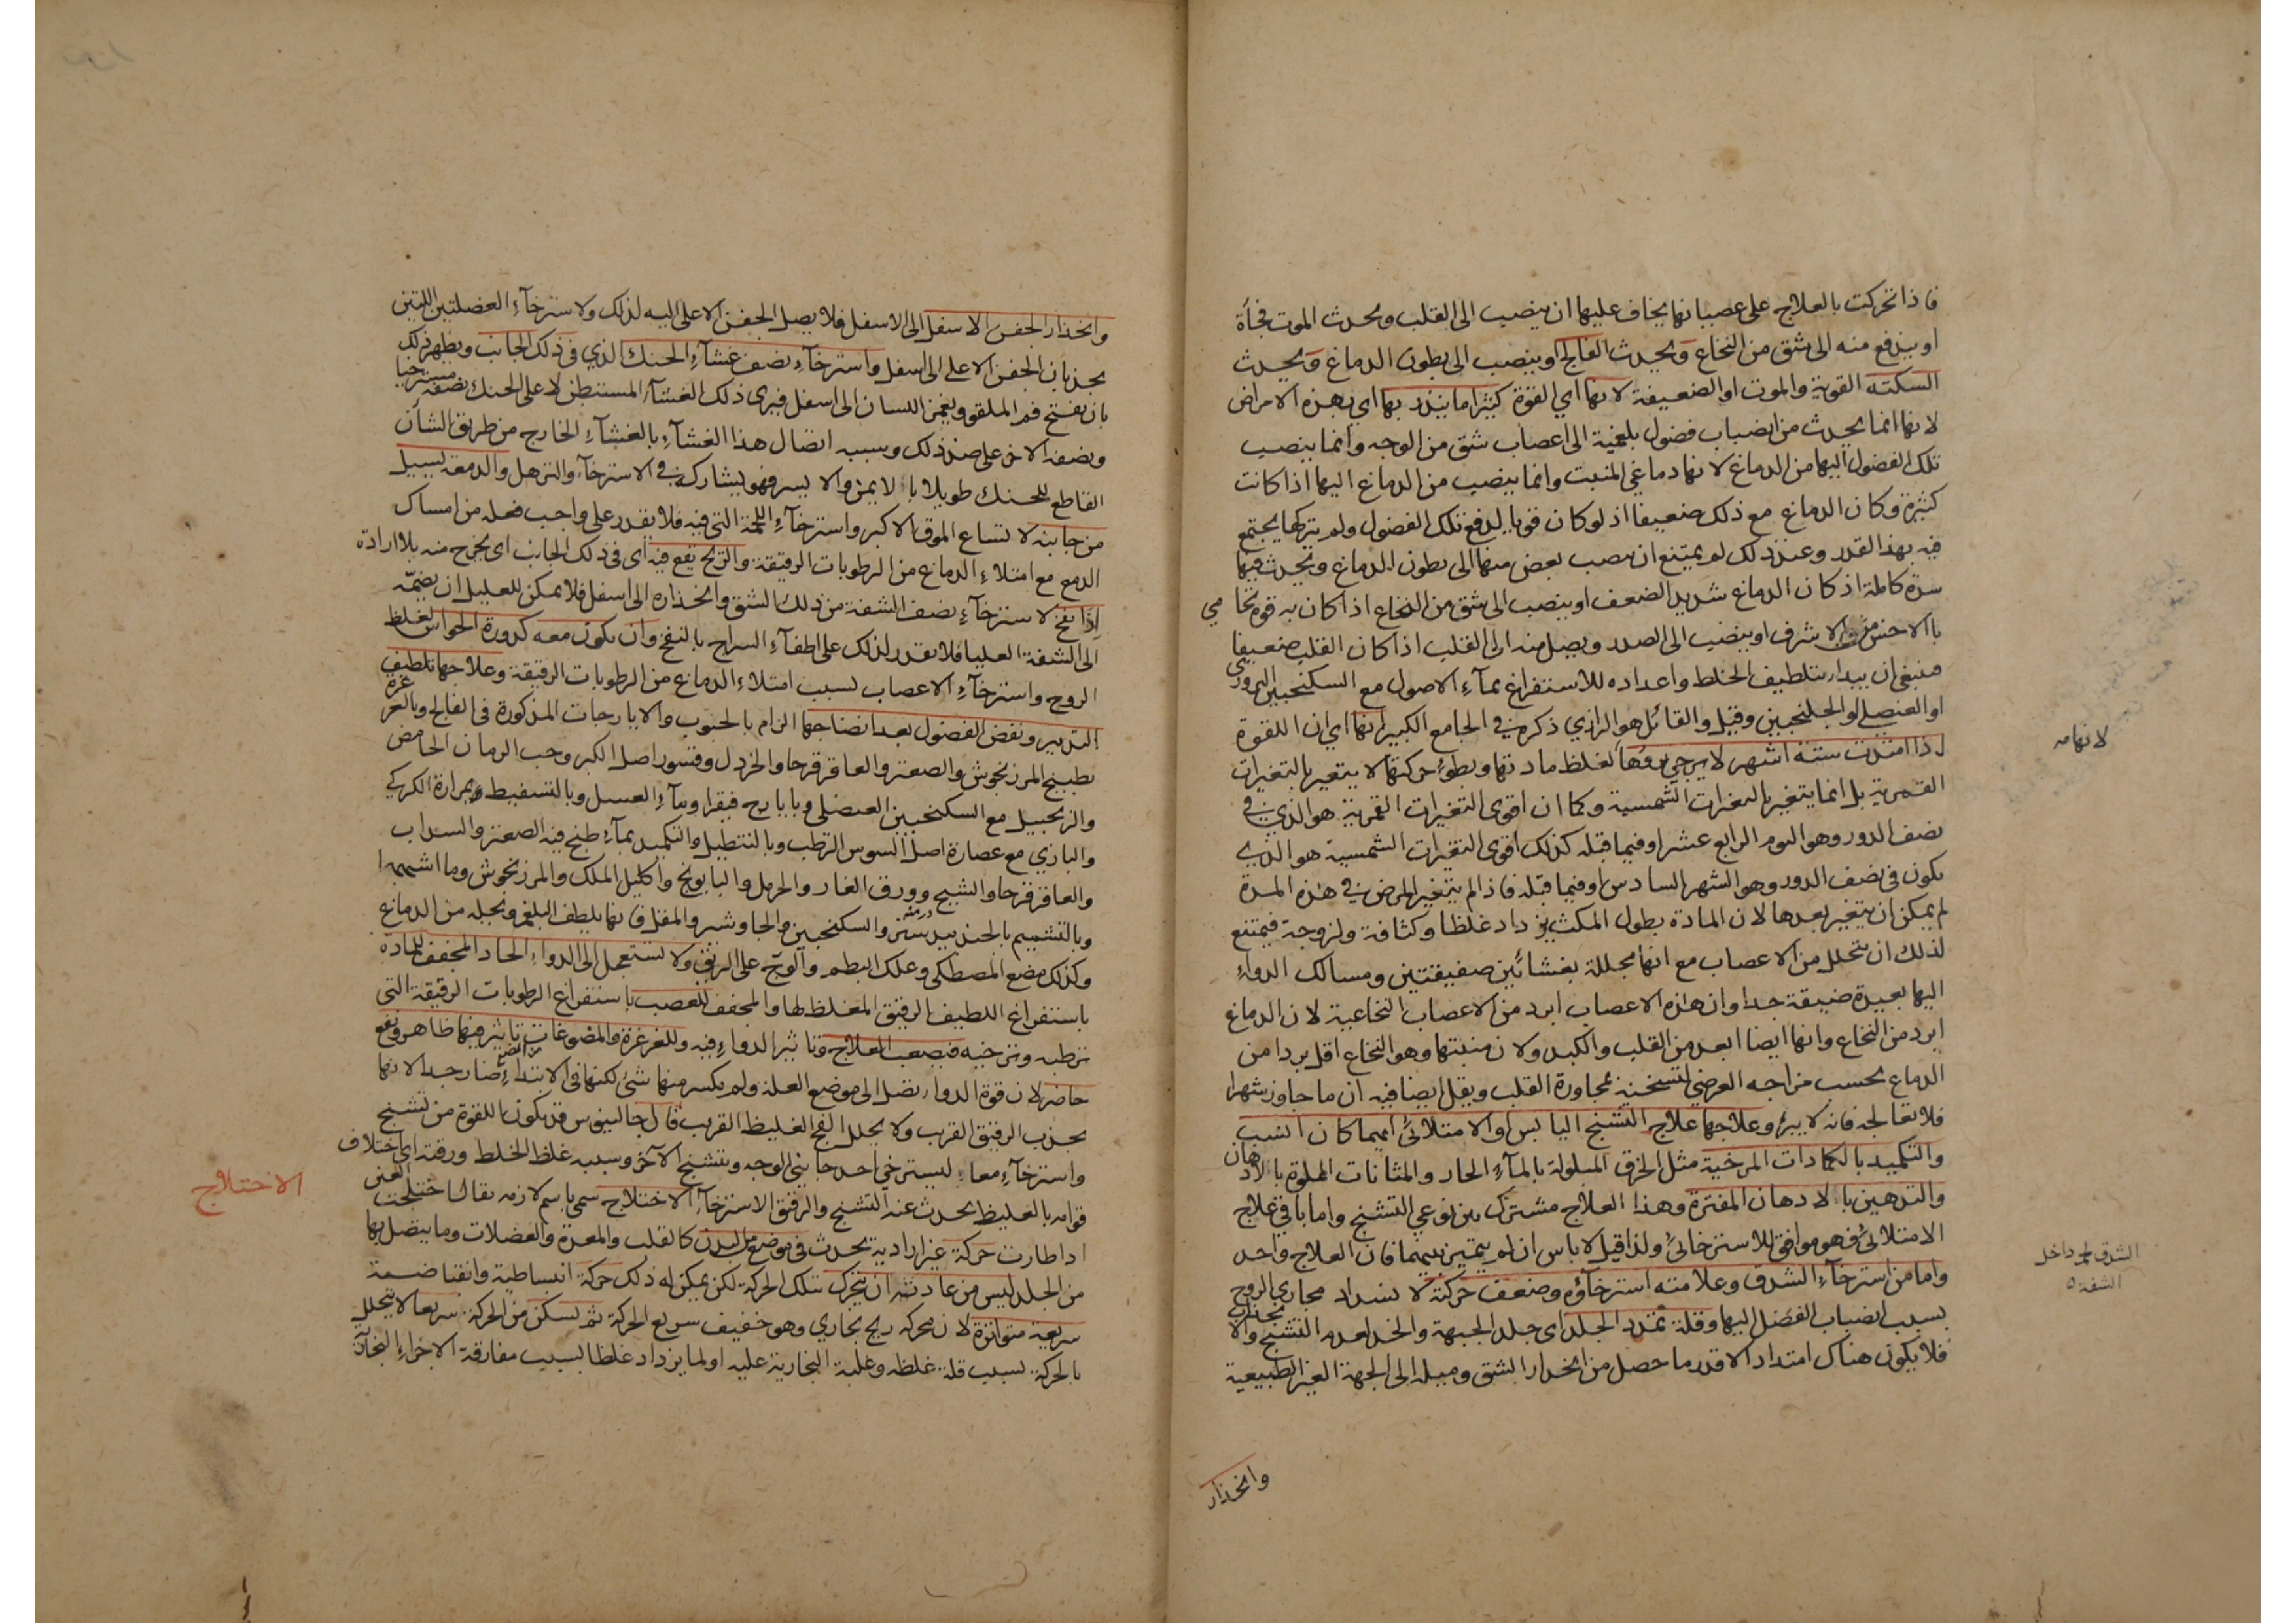 فاذا تحركت بالعلاج على عصبياتها يخاف عليها ان ينصب الى القلب ويحدث الموت فجأة
او يندفع منه الى شق من النخاع ويحدث الفالج او ينصب الى بطون الدماغ ويحدث
السكتة القوية والموت او الضعيفة لانها اي القوة كثيرا ما ينذر بها اي بهذه الامراض
لانها انما يحدث من انصباب فضول بلغمية الى اعصاب شق من الوجه وانما ينصب
تلك الفضول اليها من الدماغ لانها دماغي المنبت وانما ينصب من الدماغ اليها اذا كانت
كثيرة وكان الدماغ مع ذلك ضعيفا اذ لو كان قويا لدفع تلك الفضول ولم يتركها يجتمع
فيه بهذا القدر وعند ذلك لم يمتنع ان نصب بعض منها الى بطون الدماغ ويحدث فيها
سدة كاملة اذ كان الدماغ شديد الضعف او ينصب الى شق من النخاع اذا كان به قوة يحا مي
بالاخس من الاشرف او ينصب الى الصدر ويصل منه الى القلب اذا كان القلب ضعيفا
فينبغي ان يبدا بتلطيف الخلط واعداده للاستفراغ بماء الاصول مع السكنجبين البزوري
او العنصلي او الجلنجبين وقيل والقائل هو الرازي ذكره في الجامع الكبير انها اي ان اللقوة
اذا امتدت ستة اشهر لا يرجى برؤها لغلظ مادتها وبطؤ حركتها لا يتغير بالتغيرات
القمرية بل انما يتغير بالتغيرات الشمسية وكما ان اقوى التغيرات القمرية هو الذي في
نصف الدور وهو اليوم الرابع عشر او فيما قبله كذلك اقوى التغيرات الشمسية هو الذي
يكون في نصف الدور وهو الشهر السادس او فيما قبله فاذا لم يتغير المرض في هذه المدة
لم يمكن ان يتغير بعدها لان المادة بطول المكث يزداد غلظا وكثافة ولزوجة فيمتنع
لذلك ان يتحلل من الاعصاب مع انها مجللة بغشائين صفيقتين ومسالك الدواء
اليها بعيدة ضيقة جدا وان هذه الاعصاب ابرد من الاعصاب النخاعية لان الدماغ
ابرد من النخاع وانها ايضا ابعد من القلب والكبد ولان منبتها وهو النخاع اقل بردا من
الدماغ بحسب مزاجه العرضي لتسخينه بمجاورة القلب ويقل ايضا فيه ان ما جاوز شهرا
فلا تعالجه فانه لا يبرؤ وعلاجها علاج التشنج اليابس او الامتلائي ايهما كان السبب
والتكميد بالكمادات المرخية مثل الخرق المبلولة بالماء الحار والمثانات المملوة بالادهان
والتدهين بالادهان المفترة وهذا العلاج مشترك بين نوعي التشنج واما باقي علاج
الامتلائي فهو موافق للاسترخائي ولذا قيل لا باس ان لم يتميز بينهما فان العلاج واحد
واما من استرخاء الشدق وعلامته استرخاؤه وضعف حركته لانسداد مجاري الروح
بسبب انصباب الفضل اليها وقلة تمدد الجلد اى جلد الجبهة والخد لعدم التشنج والانجذاب
فلا يكون هناك امتداد الا قدر ما حصل من انحدار الشق وميله الى الجهة الغير الطبيعية
وانحدار
لانهامه
الشدق داخل
الشفة ٥
وانحدار الجفن الاسفل الى الاسفل فلا يصل الجفن الاعلى اليه لذلك ولاسترخاء العضلتين اللتين
يجذبان الجفن الاعلى الى اسفل واسترخاء نصف غشاء الحنك الذي في ذلك الجانب ويظهر ذلك
بان يفتح فم الملقو ويغمز اللسان الى اسفل فيرى ذلك الغشاء المستبطن لاعلى الحنك نصفه مسترخيا
ونصفه الاخر على ضد ذلك وسببه اتصال هذا الغشاء بالغشاء الخارج من طريق الشان
القاطع للحنك طويلا بالايمن والايسر فهو يشارك في الاسترخاء والترهل والدمعة يسيل
من جانبه لاتساع الموق الاكبر واسترخاء اللحمة التي فيه فلا يقدر على واجب فعله من امساك
الدمع مع امتلاء الدماغ من الرطوبات الرقيقة والريح يقع فيه اى في ذلك الجانب اى يخرج منه بلا ارادة
اذا نفخ لاسترخاء نصف الشفة من ذلك الشق وانحداره الى اسفل فلا يمكن للعليل ان يضمه
الى الشفة العليا فلا يقدر لذلك على اطفاء السراج بالنفخ وان يكون معه كدورة الحواس لغلظ
الروح واسترخاء الاعصاب بسبب امتلاء الدماغ من الرطوبات الرقيقة وعلاجها تلطيف
التدبير ونفض الفضول بعد انضاجها التام بالحبوب والايارجات المذكورة في الفالج وبالغرغرة
بطبيخ المرزنجوش والصعتر والعاقرقرحا والخردل وقشور اصل الكبر وحب الرمان الحامض
والزنجبيل مع السكنجبين العنصلي وبايارج فيقرا وبماء العسل وبالتسعيط بمرارة الكركي
والبازي مع عصارة اصل السوس الرطب وبالتنطيل والتكميد بماء طبخ فيه الصعتر والسداب
والعاقرقرحا والشيح وورق الغار والحرمل والبابونج واكليل الملك والمرزنجوش وما اشبهها
وبالتشميم بالجندبيدستر والسكنجبين والجاوشير والمقل فانها يلطف البلغم ويحلله من الدماغ
وكذلك مضغ المصطكى وعلك البطم والوج على الريق ولا يستعمل الى الدواء الحاد المجفف للمادة
باستفراغ اللطيف الرقيق المغلظ لها والمجفف للعصب باستفراغ الرطوبات الرقيقة التي
ترطبه وترخيه فيصعب العلاج وتاثير الدواء فيه وللغرغرة والمضوغات تاثير فيها ظاهر ونفع
حاضر لان قوة الدواء تصل الى موضع العلة ولم يكسر منها شئ لكنها في الابتداء ضار جدا لانها
يجذب الرقيق القريب ولا يحلل الفج الغليظ القريب قال جالينوس قد يكون اللقوة من تشنج
واسترخاء معا ليسترخي احد جانبي الوجه ويتشنج الاخر وسببه غلظ الخلط ورقته اى اختلاف
قوامه بالغليظ يحدث عنه التشنج والرقيق الاسترخاء الاختلاج سمى باسم لازمه يقال اختلجت العين
اذا طارت حركة غير ارادية يحدث في موضع من البدن كالقلب والمعدة والعضلات وما يتصل بها
من الجلد ليس من عادته ان يتحرك تلك الحركة لكن يمكن له ذلك حركة انبساطية وانقباضية
سريعة متواترة لان محركه ريح بخاري وهو خفيف سريع الحركة ثم تسكن من الحركة سريعا لا يتحلل
بالحركة بسبب قلة غلظه وغلبة البخارية عليه او لما يزداد غلظا بسبب مفارقة الاجزاء البخارية
الاختلاج